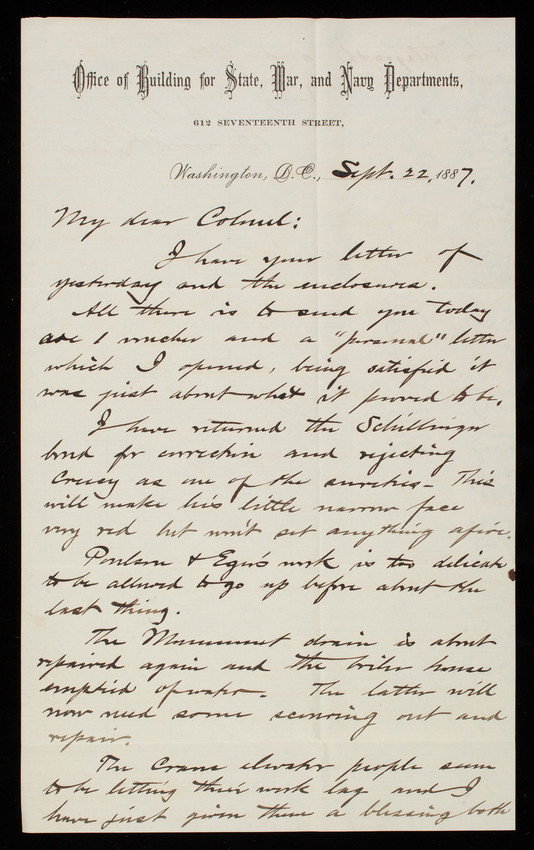 Office of Building for State, War, and Navy Departments,
612 SEVENTEENTH STREET,
Washington, D.C., Sept. 22, 1887.
My dear Colonel:
I have your letter of
yesterday and the enclosures.
All there is to send you today
are 1 voucher and a "personal" letter
which I opened, being satisfied it
was just about what it proved to be.
I have returned the Schillinger
bond for correction and rejecting
Creecy as one of the sureties - This
will make his little narrow face
very red but won't set anything afire.
Poulsen & Eger's work is too delicate
to be allowed to go up before about the
last thing.
The Monument drain is about
repaired again and the boiler house
emptied of water. The latter will
now need some scouring out and
repair.
The Crane elevator people seem
to be letting their work lag and I
have just given them a blessing both